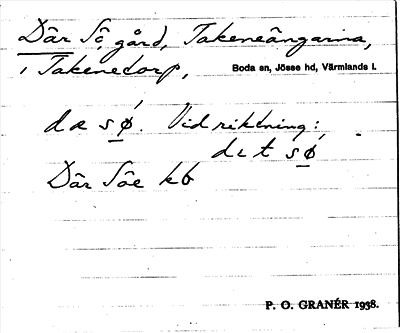 Där Sö, gård, Takeneängarna,
i Takenetorp, Boda sn, Jösse hd, Värmlands l.
dæ sǿ. Vid riktning:
dit sǿ
Där Söe kb
P. O. GRANÉR 1938.